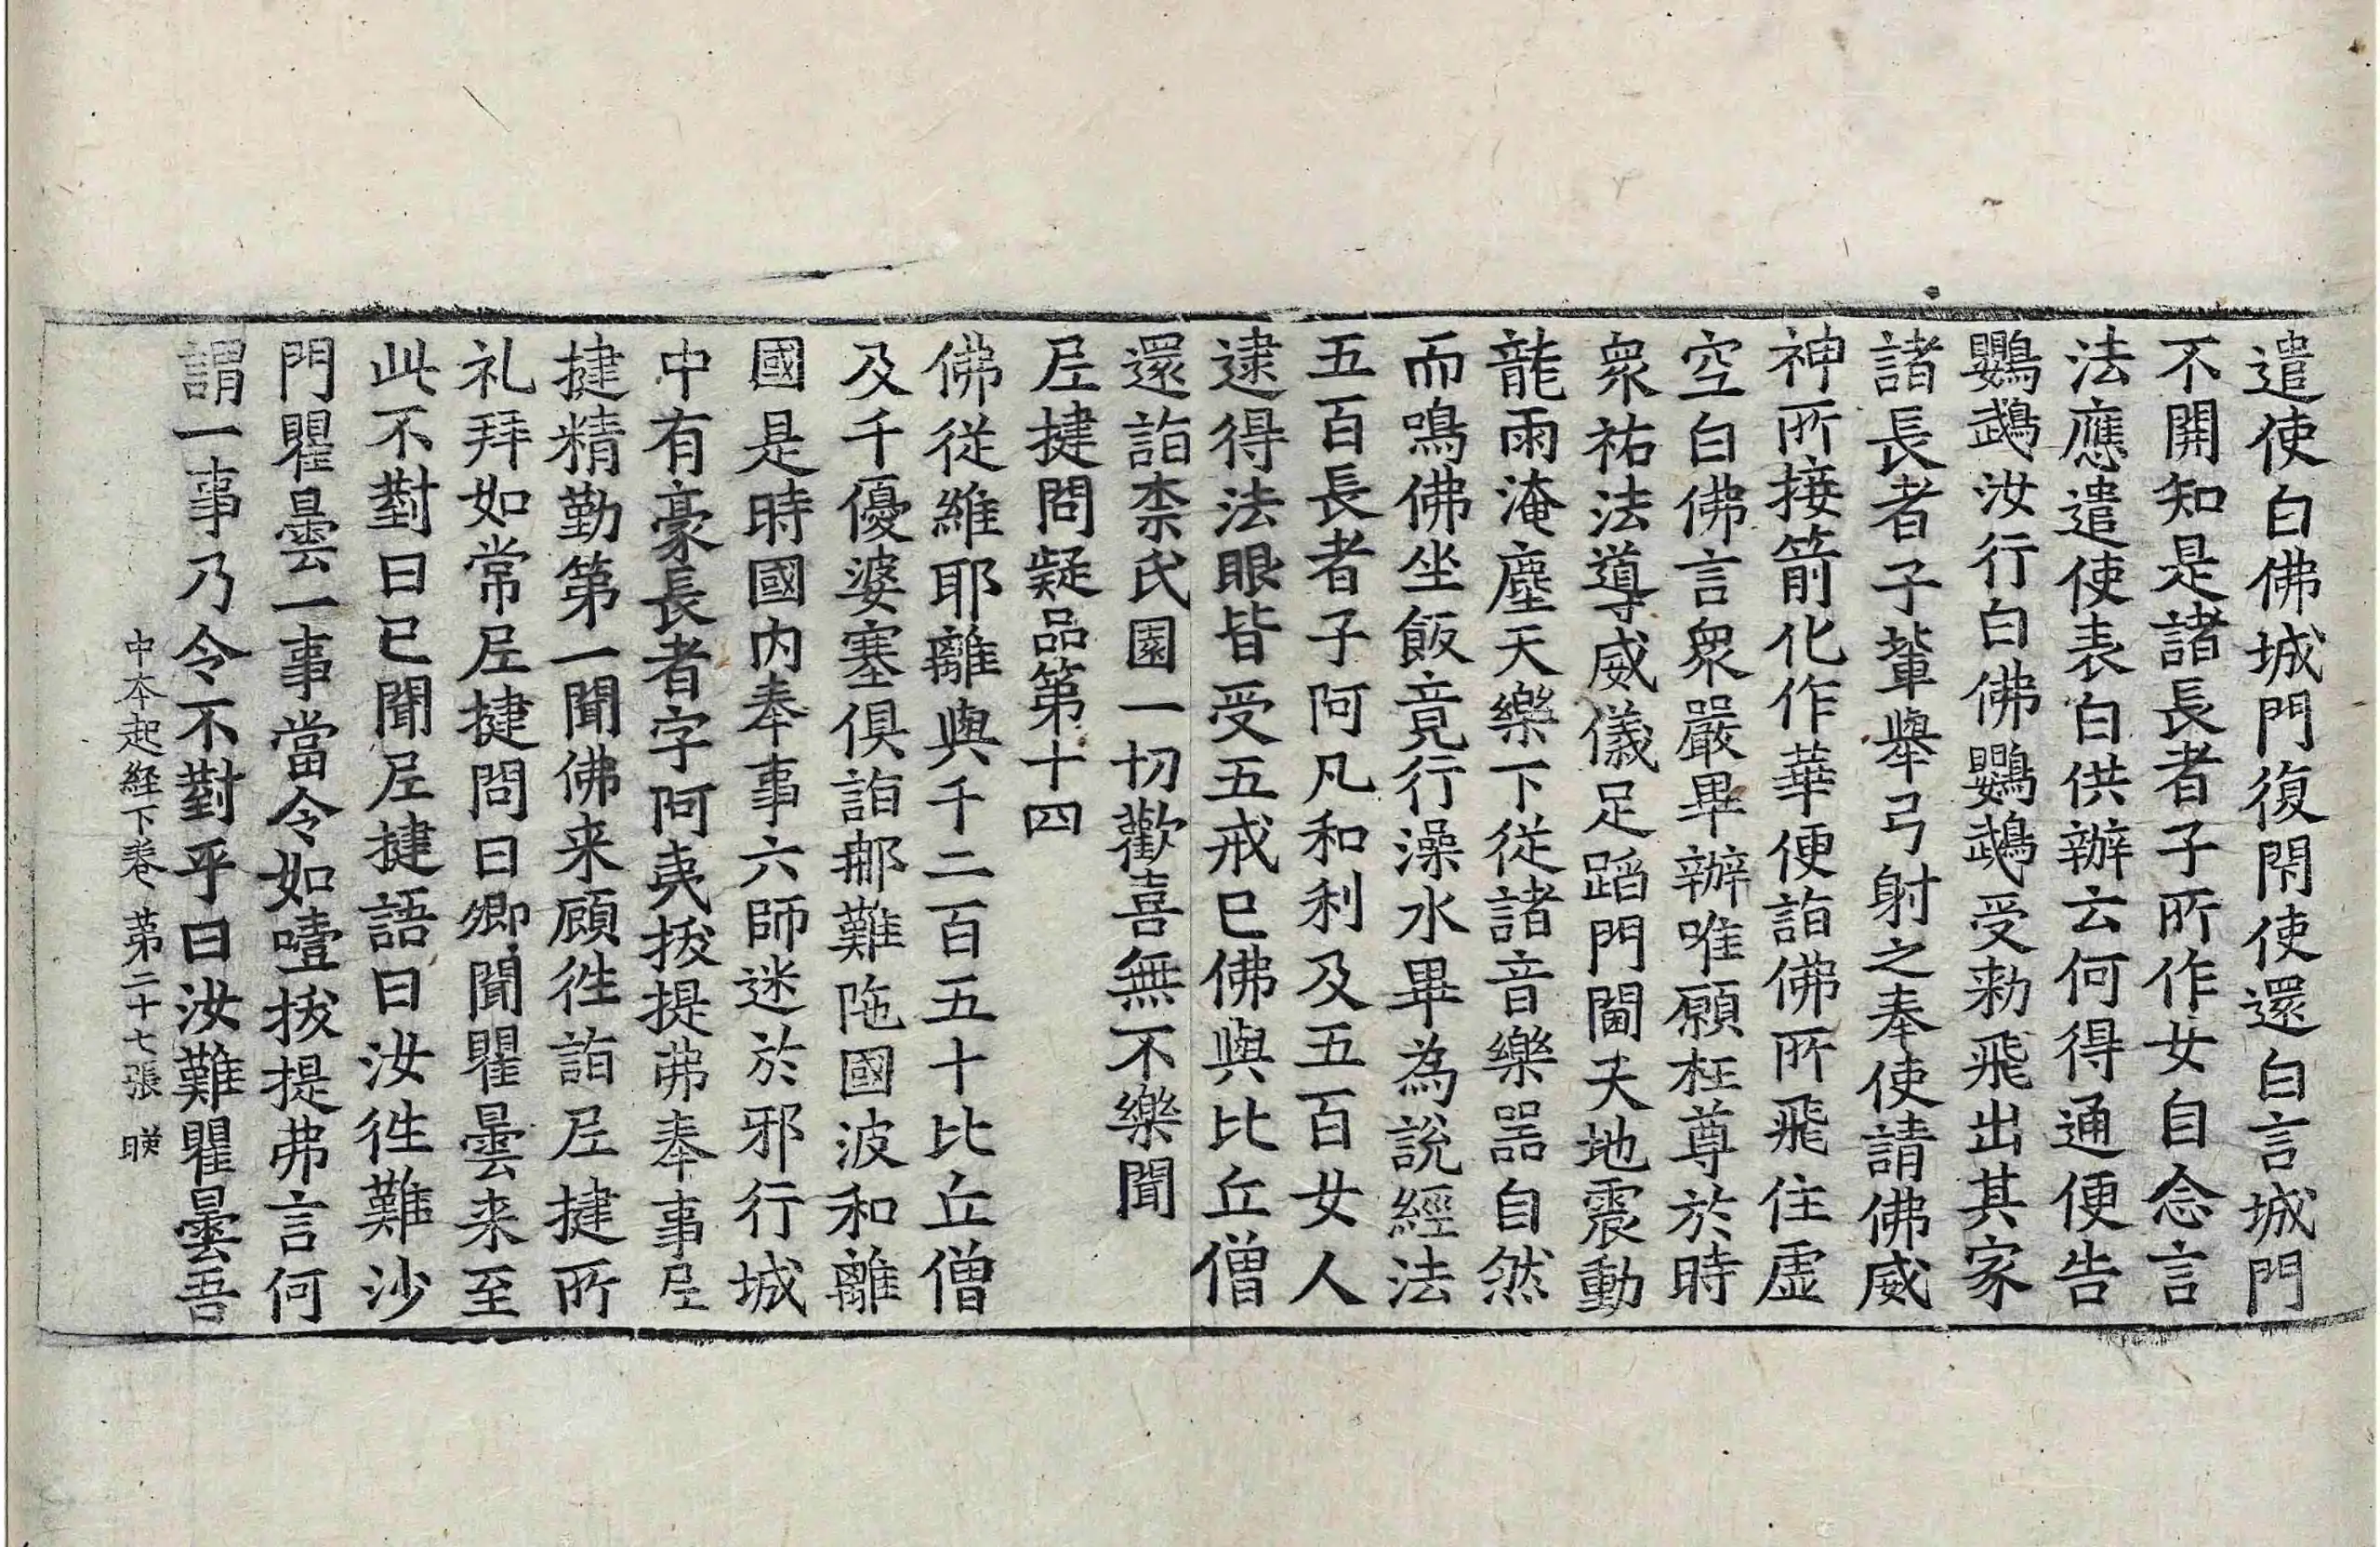 遣使白佛城門復閇使還白言城門
不開知是諸長者子所作女自念言
法應遣使表白供辦云何得通便告
鸚鵡汝行白佛鸚鵡受勑飛出其家
諸長者子輩舉弓射之奉使請佛威
神所接箭化作華便詣佛所飛住虛
空白佛言衆嚴畢辦唯願枉尊於時
衆祐法導威儀足蹈門閫天地震動
龍雨淹塵天樂下從諸音樂器自然
而鳴佛坐飯竟行澡水畢為說經法
五百長者子阿凡和利及五百女人
逮得法眼皆受五戒已佛與比丘僧
還詣柰氏園一切歡喜無不樂聞
尼揵問疑品第十四
佛從維耶離與千二百五十比丘僧
及千優婆塞俱詣那難陁國波和離
國是時國內奉事六師迷於邪行城
中有豪長者字阿夷拔提弗奉事尼
揵精勤第一聞佛来顧徃詣尼揵所
礼拜如常尼揵問曰卿聞瞿曇来至
此不對曰已聞尼揵語曰汝徃難沙
門瞿曇一事當令如噎拔提弗言何
謂一事乃令不對乎曰汝難瞿曇吾
中夲起経下卷 第二十七張 暎